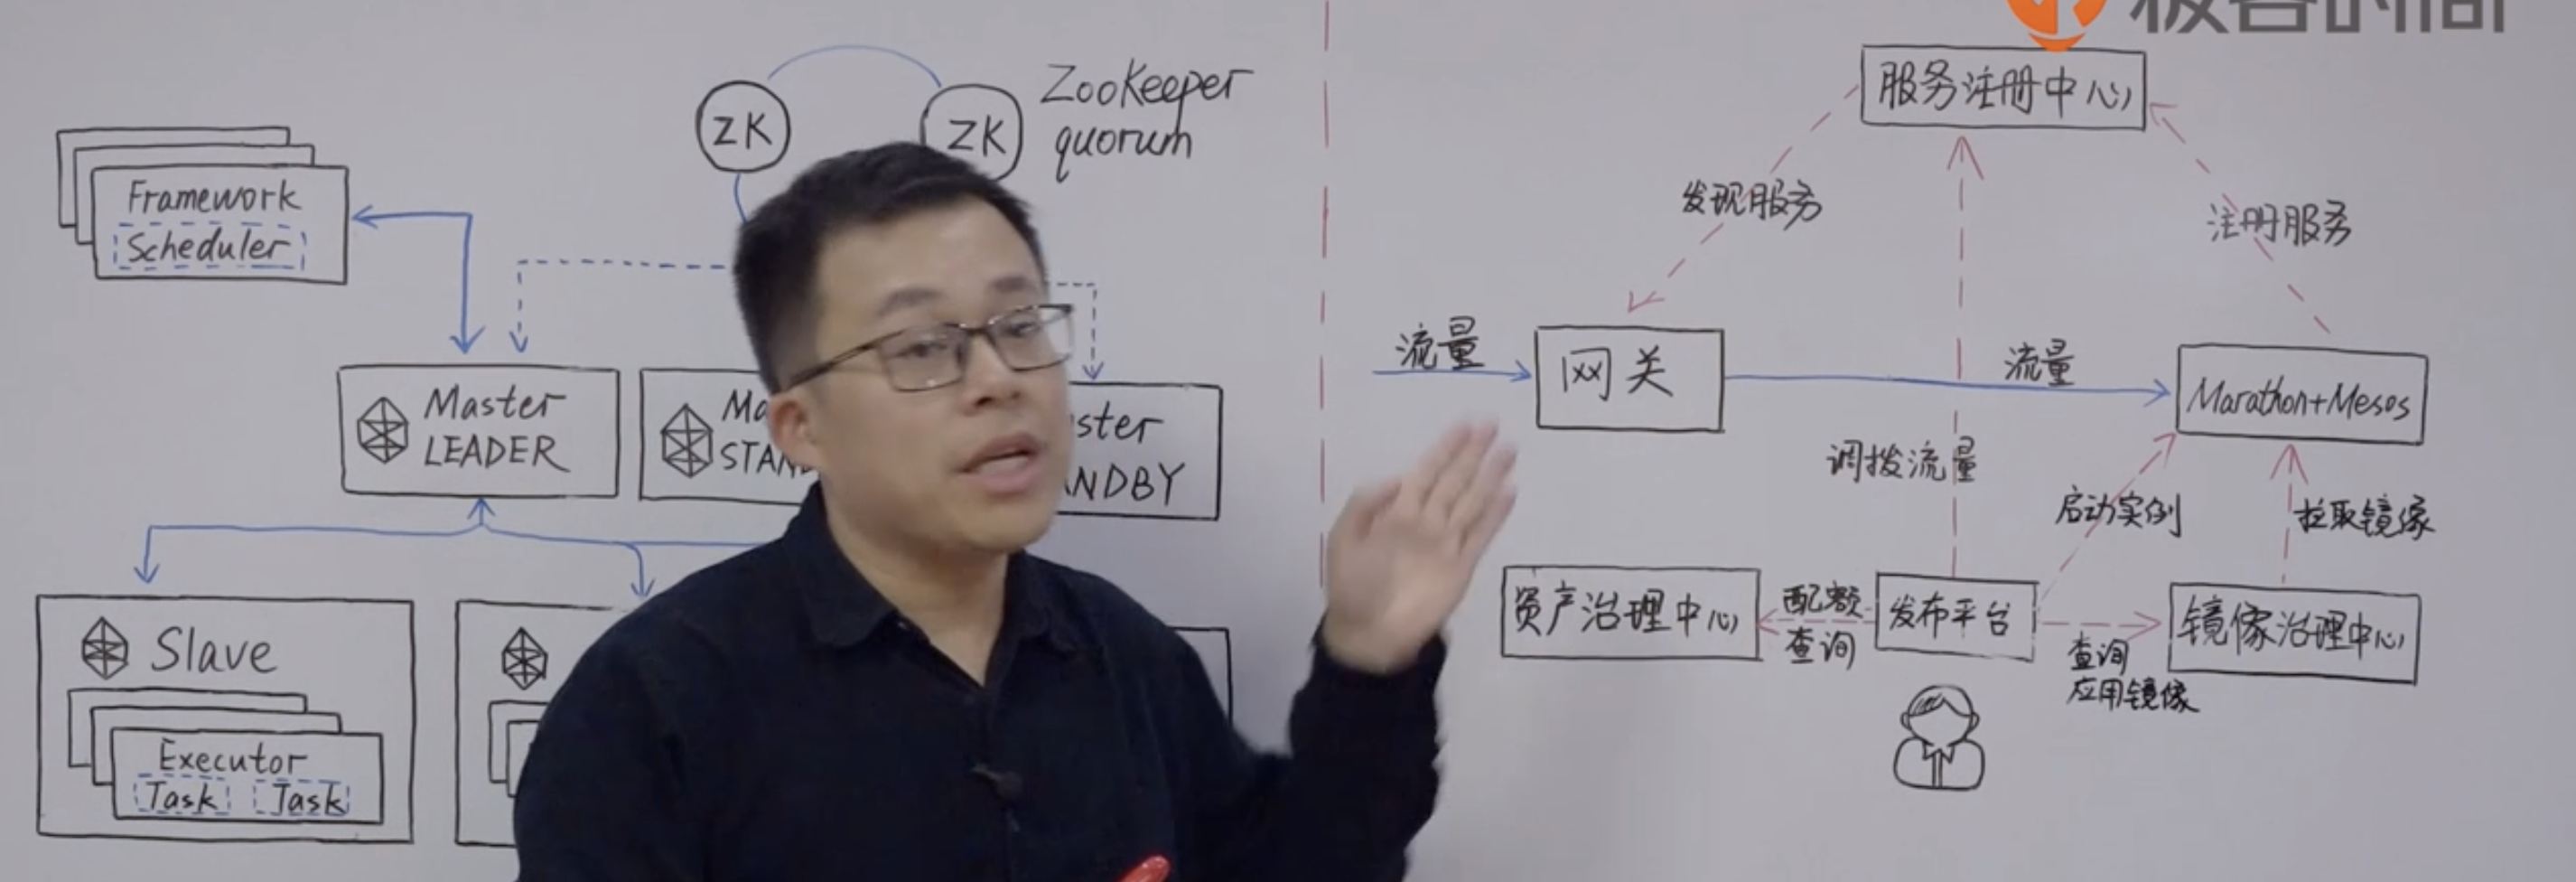 极客时间
ZK
ZK
ZooKeeper
quorum
Framework
Scheduler
Master
LEADER
NDBY
Slave
Executor
Task Task
服务注册中心
发现服务
注册服务
流量
网关
流量
Marathon+Mesos
调拨流量
启动实例
拉取镜像
资产治理中心
配额
查询
发布平台
查询
应用镜像
镜像治理中心